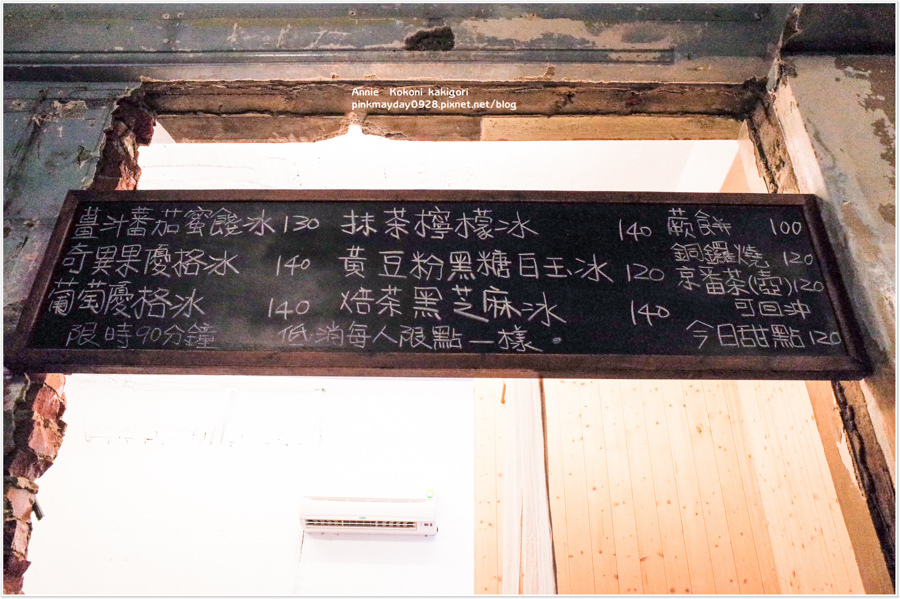 Annie Kokoni kakigori
pinkmayday0928.pixnet.net/blog
薑汁蕃茄蜜餞冰 130
奇異果優格冰 140
葡萄優格冰 140
限時90分鐘
抹茶檸檬冰 140
黃豆粉黑糖白玉冰 120
焙茶黑芝麻冰 140
低消每人限點一樣
蕨餅 100
銅鑼燒 120
京番茶(壺)120
可回沖
今日甜點120